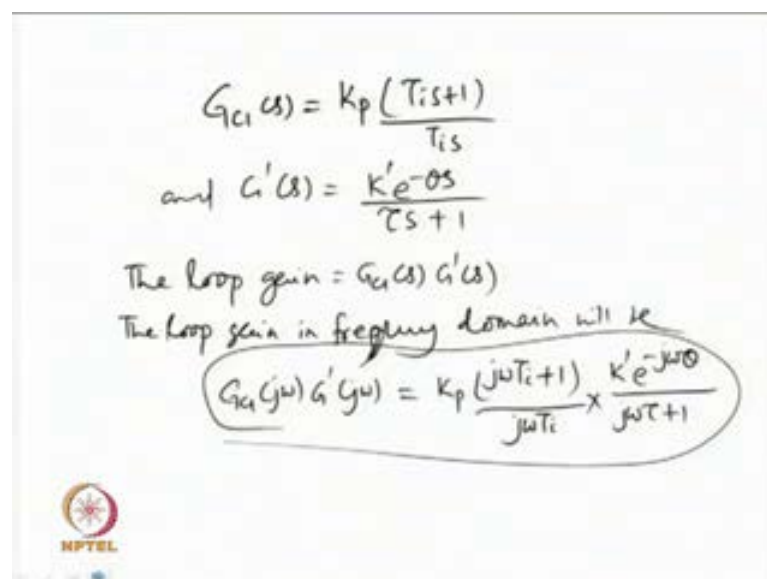 Gc1(s) = Kp (Tis+1) / Tis
and G'(s) = K'e^-θs / τs + 1
The loop gain = Gc1(s) G'(s)
The loop gain in frequency domain will be
Gc1(jω) G'(jω) = Kp (jωTi+1) / jωTi × K'e^-jωθ / jωτ+1
NPTEL